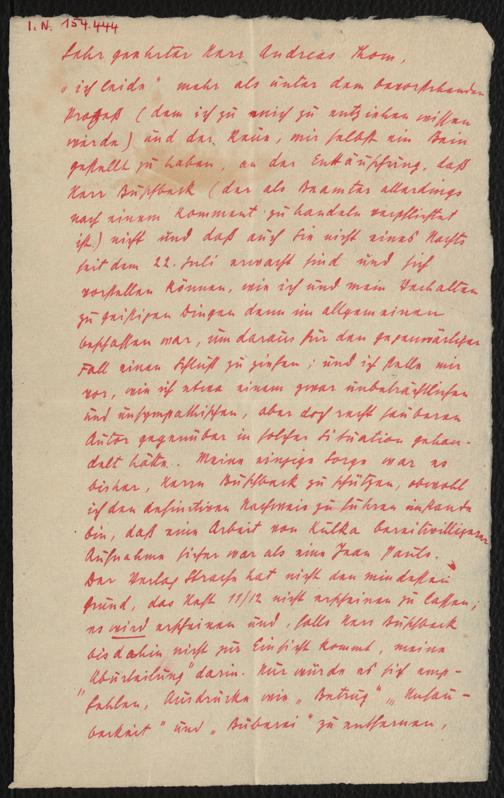 I. N. 154.444
Sehr geehrter Herr Andreas Thom,
„ich leide“ mehr als unter dem bevorstehenden
Prozeß (dem ich zu mich zu entziehen wissen
werde) und der Reue, mir selbst ein Bein
gestellt zu haben, an der Enttäuschung, daß
Herr Buschbeck (der als Beamter allerdings
nach einem Komment zu handeln verpflichtet
ist) nicht und daß auch Sie nicht eines Nachts
seit dem 22. Juli erwacht sind und sich
vorstellen können, wie ich und mein Verhalten
zu geistigen Dingen denn im allgemeinen
beschaffen war, um daraus für den gegenwärtigen
Fall einen Schluß zu ziehen; und ich stelle mir
vor, wie ich etwa einem zwar unbeträchtlichen
und unsympathischen, aber doch recht sauberen
Autor gegenüber in solcher Situation gehan-
delt hätte. Meine einzige Sorge war es
bisher, Herrn Buschbeck zu schützen, obwohl
ich den definitiven Nachweis zu führen imstande
bin, daß eine Arbeit von Kulka bereitwilligerer
Aufnahme sicher war als eine Jean Pauls.
Der Verlag Strache hat nicht den mindesten
Grund, das Heft 11/12 nicht erscheinen zu lassen;
es wird erscheinen und, falls Herr Buschbeck
bis dahin nicht zur Einsicht kommt, meine
„Aburteilung“ darin. Nur würde es sich emp-
fehlen, Ausdrücke wie „Betrug“, „Unsau-
berkeit“ und „Büberei“ zu entfernen,